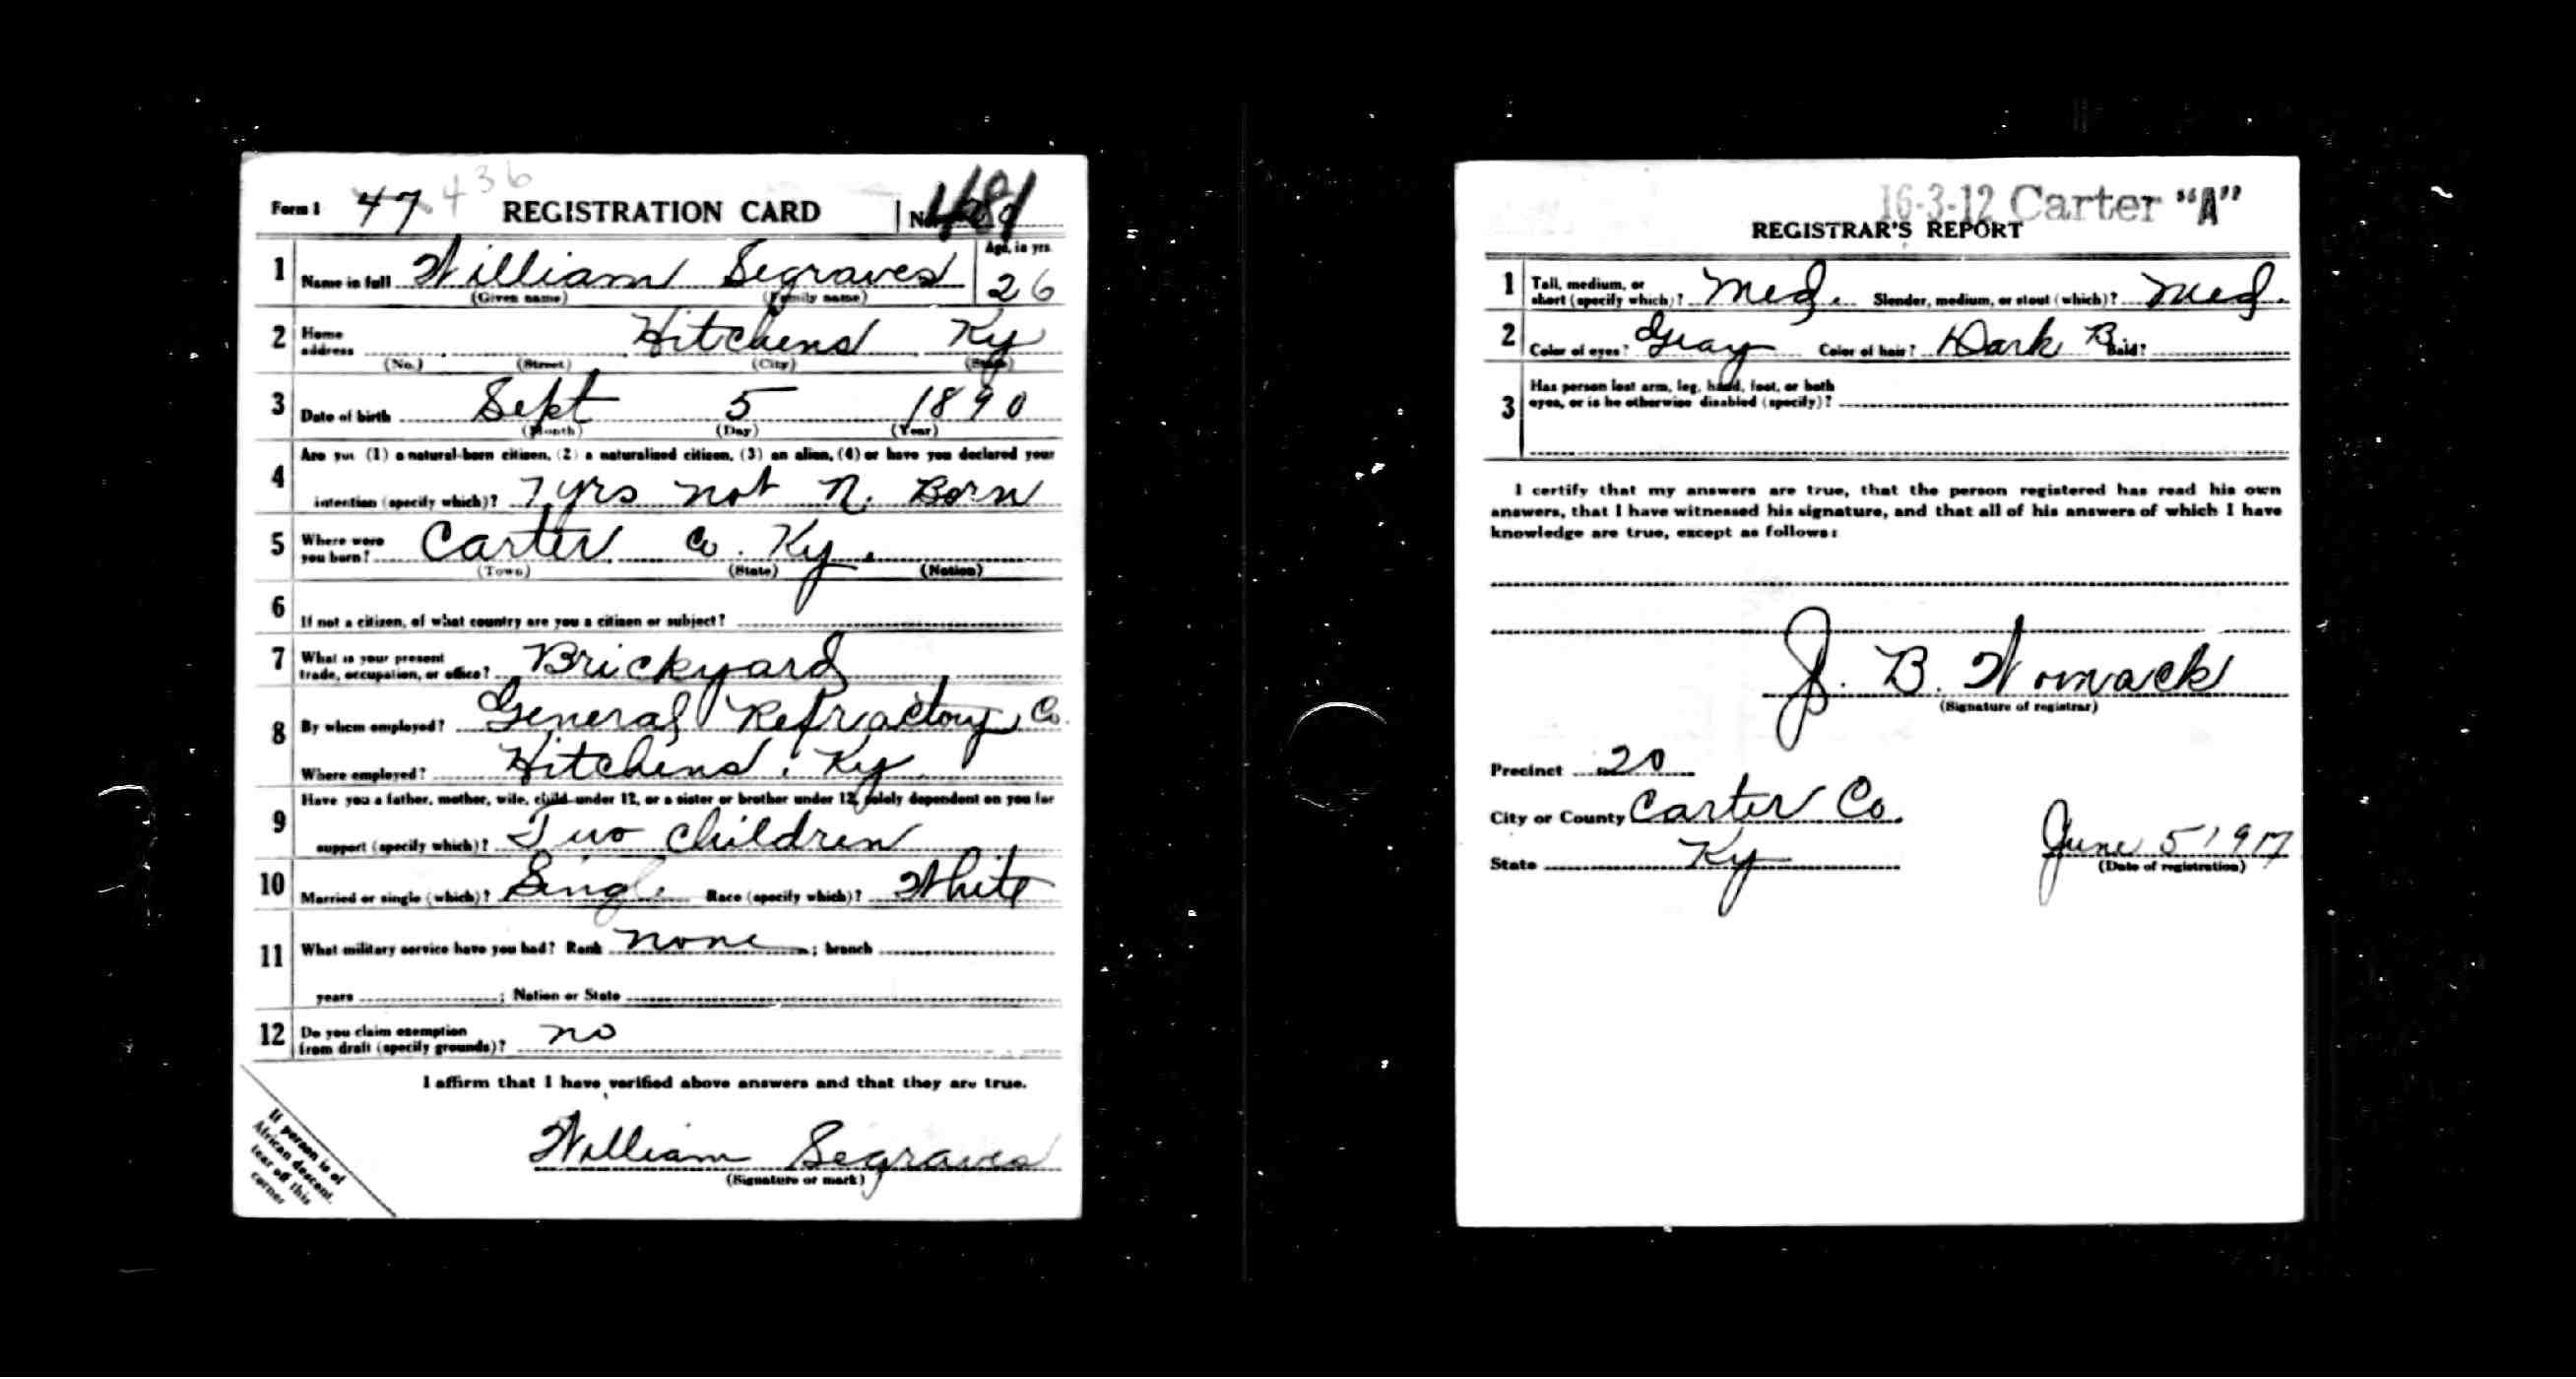 436
Form 1 47 REGISTRATION CARD No.
Age, in yrs
1 Name in full William Segraves 26
(Given name) (Family name)
2 Home address Hitchens Ky
(No.) (Street) (City) (State)
3 Date of birth Sept 5 1890
(Month) (Day) (Year)
4 Are you (1) a natural-born citizen, (2) a naturalized citizen, (3) an alien, (4) or have you declared your
intention (specify which)? yrs not n. Born
5 Where were you born? Carter Co. Ky.
(Town) (State) (Nation)
6 If not a citizen, of what country are you a citizen or subject?
7 What is your present trade, occupation, or office? Brickyard
8 By whom employed? General Refractory Co.
Where employed? Hitchens, Ky
9 Have you a father, mother, wife, child under 12, or a sister or brother under 12, solely dependent on you for
support (specify which)? Two children
10 Married or single (which)? Single Race (specify which)? White
11 What military service have you had? Rank none ; branch
years ; Nation or State
12 Do you claim exemption from draft (specify grounds)? no
I affirm that I have verified above answers and that they are true.
William Segraves
(Signature or mark)
If person is of
African descent,
tear off this
corner
16-3-12 Carter "A"
REGISTRAR'S REPORT
1 Tall, medium, or short (specify which)? Med. Slender, medium, or stout (which)? Med.
2 Color of eyes? Gray Color of hair? Dark B Bald?
3 Has person lost arm, leg, hand, foot, or both
eyes, or is he otherwise disabled (specify)?
I certify that my answers are true, that the person registered has read his own
answers, that I have witnessed his signature, and that all of his answers of which I have
knowledge are true, except as follows:
J. B. Womack
(Signature of registrar)
Precinct 20
City or County Carter Co.
State Ky
June 5 1917
(Date of registration)